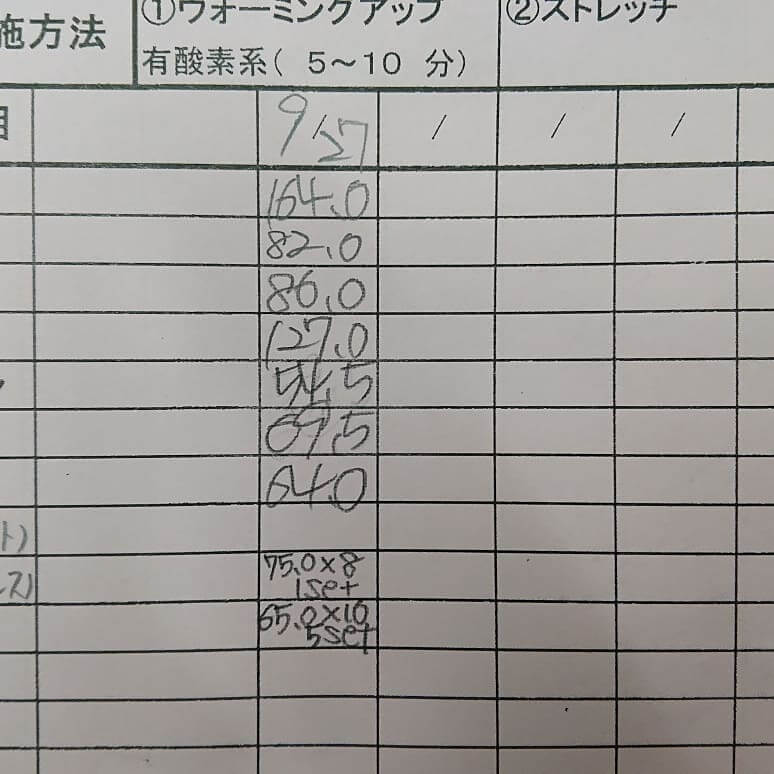 ①ウォーミングアップ
②ストレッチ
施方法
有酸素系( 5～10 分)
目
9/27
/
/
/
164.0
82.0
86.0
127.0
54.5
69.5
64.0
ト)
75.0×8
1set
ス)
65.0×10
5set